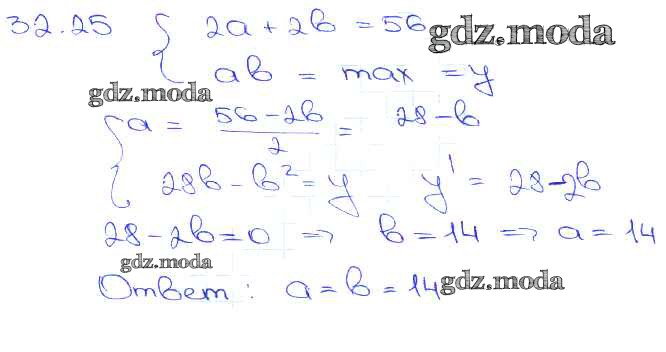 32.25 { 2a + 2b = 56 gdz.moda
ab = max = y
gdz.moda
{ a = (56 - 2b)/2 = 28 - b
28b - b² = y y' = 28 - 2b
28 - 2b = 0 => b = 14 => a = 14
gdz.moda
Ответ: a = b = 14 gdz.moda